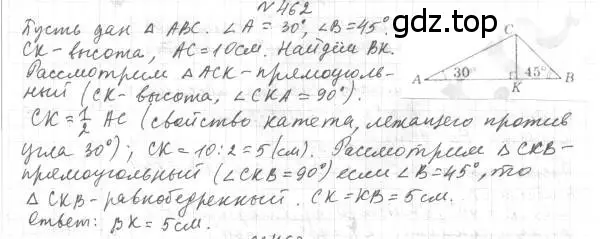 №462
Пусть дан △ ABC. ∠A = 30°, ∠B = 45°.
CK - высота, AC = 10см. Найдём BK.
Рассмотрим △ACK - прямоуголь-
ный (CK - высота, ∠CKA = 90°).
CK = 1/2 AC (свойство катета, лежащего против
угла 30°); CK = 10:2 = 5 (см). Рассмотрим △CKB -
прямоугольный (∠CKB = 90°) если ∠B = 45°, то
△CKB - равнобедренный. CK = KB = 5см.
Ответ: BK = 5см.
gdz.top
C
A 30° 45° B
K